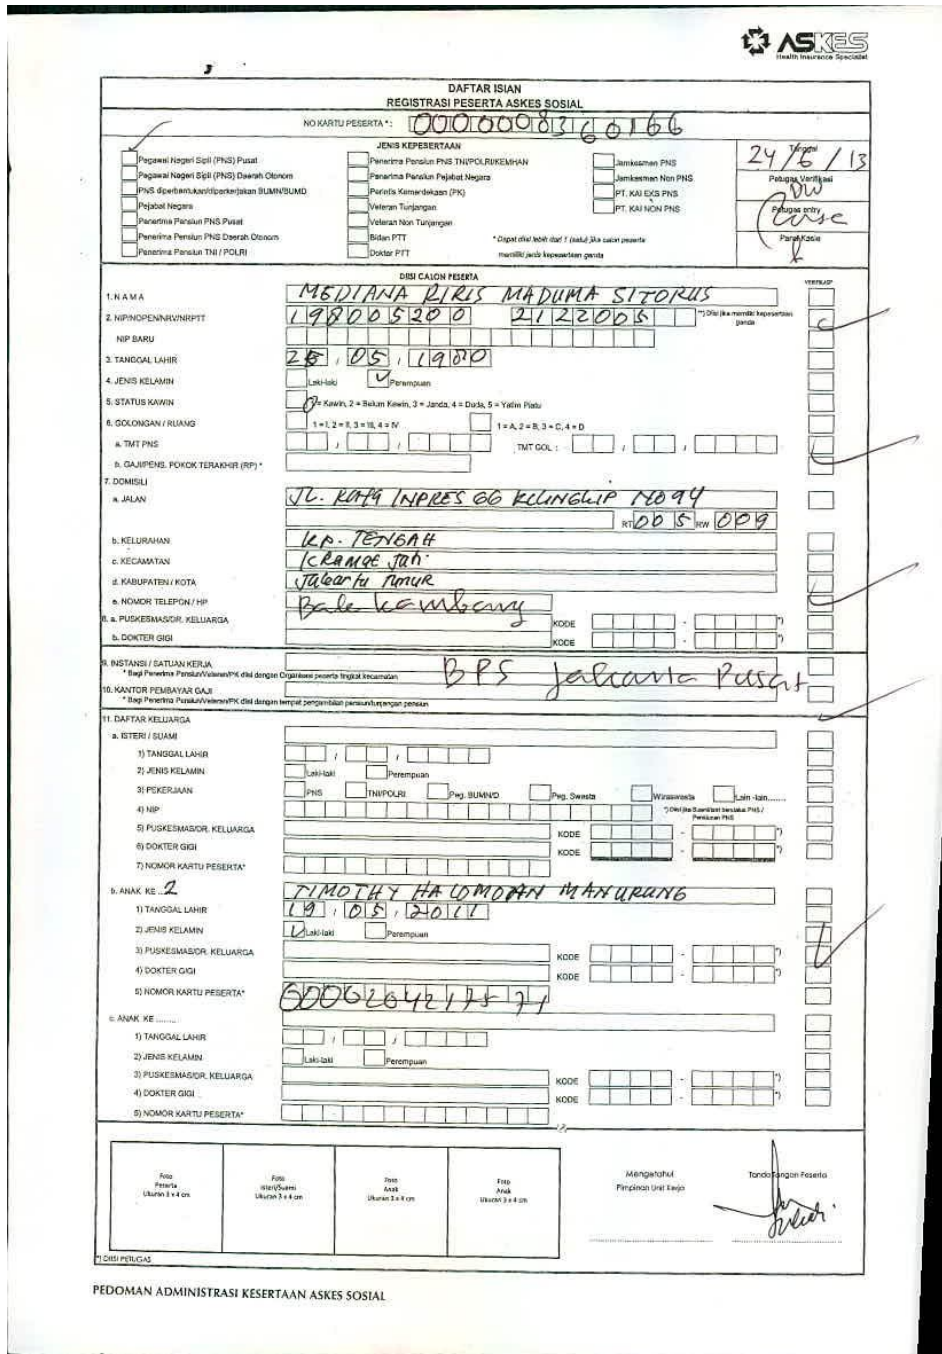 ASKES
Health Insurance Specialist
DAFTAR ISIAN
REGISTRASI PESERTA ASKES SOSIAL
NO KARTU PESERTA * : 0000008360166
JENIS KEPESERTAAN
Pegawai Negeri Sipil (PNS) Pusat
Pegawai Negeri Sipil (PNS) Daerah Otonom
PNS diperbentukan/diperkerjakan BUMN/BUMD
Pejabat Negara
Penerima Pensiun PNS Pusat
Penerima Pensiun PNS Daerah Otonom
Penerima Pensiun TNI / POLRI
Penerima Pensiun PNS TNI/POLRI/KEMHAN
Penerima Pensiun Pejabat Negara
Perintis Kemerdekaan (PK)
Veteran Tunjangan
Veteran Non Tunjangan
Bidan PTT
Dokter PTT
Jamkesmen PNS
Jamkesmen Non PNS
PT. KAI EKS PNS
PT. KAI NON PNS
* Dapat diisi lebih dari 1 (satu) jika calon peserta
memiliki jenis kepesertaan ganda
Tanggal
24/6/13
Petugas Verifikasi
Petugas entry
Paraf Kasie
DIISI CALON PESERTA
VERIFIKASI*
1. NAMA MEDIANA RIRIS MADUMA SITORUS
2. NIP/NOPEN/NRV/NRPTT 198005200 2122005 **) Diisi jika memiliki kepesertaan ganda
NIP BARU
3. TANGGAL LAHIR 25, 05, 1980
4. JENIS KELAMIN Laki-laki Perempuan
5. STATUS KAWIN 1 = Kawin, 2 = Belum Kawin, 3 = Janda, 4 = Duda, 5 = Yatim Piatu
6. GOLONGAN / RUANG 1 = I, 2 = II, 3 = III, 4 = IV 1 = A, 2 = B, 3 = C, 4 = D
a. TMT PNS / / TMT GOL : / /
b. GAJI/PENS. POKOK TERAKHIR (RP) *
7. DOMISILI
a. JALAN JL. RAYA INPRES GG KELINGKIP NO 94
RT 005 RW 009
b. KELURAHAN KP. TENGAH
c. KECAMATAN KRAMAT Jati
d. KABUPATEN / KOTA Jakarta TIMUR
e. NOMOR TELEPON / HP Bale kambang
8. a. PUSKESMAS/DR. KELUARGA KODE - *)
b. DOKTER GIGI KODE - *)
9. INSTANSI / SATUAN KERJA BPS Jakarta Pusat
* Bagi Penerima Pensiun/Veteran/PK diisi dengan Organisasi peserta tingkat kecamatan
10. KANTOR PEMBAYAR GAJI
* Bagi Penerima Pensiun/Veteran/PK diisi dengan tempat pengambilan pensiun/tunjangan pensiun
11. DAFTAR KELUARGA
a. ISTERI / SUAMI
1) TANGGAL LAHIR / /
2) JENIS KELAMIN Laki-laki Perempuan
3) PEKERJAAN PNS TNI/POLRI Peg. BUMN/D Peg. Swasta Wiraswasta Lain -lain........
4) NIP
5) PUSKESMAS/DR. KELUARGA KODE - *)
6) DOKTER GIGI KODE - *)
7) NOMOR KARTU PESERTA*
b. ANAK KE ..2 TIMOTHY HALOMOAN MANURUNG
1) TANGGAL LAHIR 19, 05, 2011
2) JENIS KELAMIN Laki-laki Perempuan
3) PUSKESMAS/DR. KELUARGA KODE - *)
4) DOKTER GIGI KODE - *)
5) NOMOR KARTU PESERTA* 0006264217571
c. ANAK KE ........
1) TANGGAL LAHIR / /
2) JENIS KELAMIN Laki-laki Perempuan
3) PUSKESMAS/DR. KELUARGA KODE - *)
4) DOKTER GIGI KODE - *)
5) NOMOR KARTU PESERTA*
Foto
Peserta
Ukuran 3 x 4 cm
Foto
Isteri/Suami
Ukuran 3 x 4 cm
Foto
Anak
Ukuran 3 x 4 cm
Foto
Anak
Ukuran 3 x 4 cm
Mengetahui
Pimpinan Unit Kerja
Tanda Tangan Peserta
*) DIISI PETUGAS
PEDOMAN ADMINISTRASI KESERTAAN ASKES SOSIAL